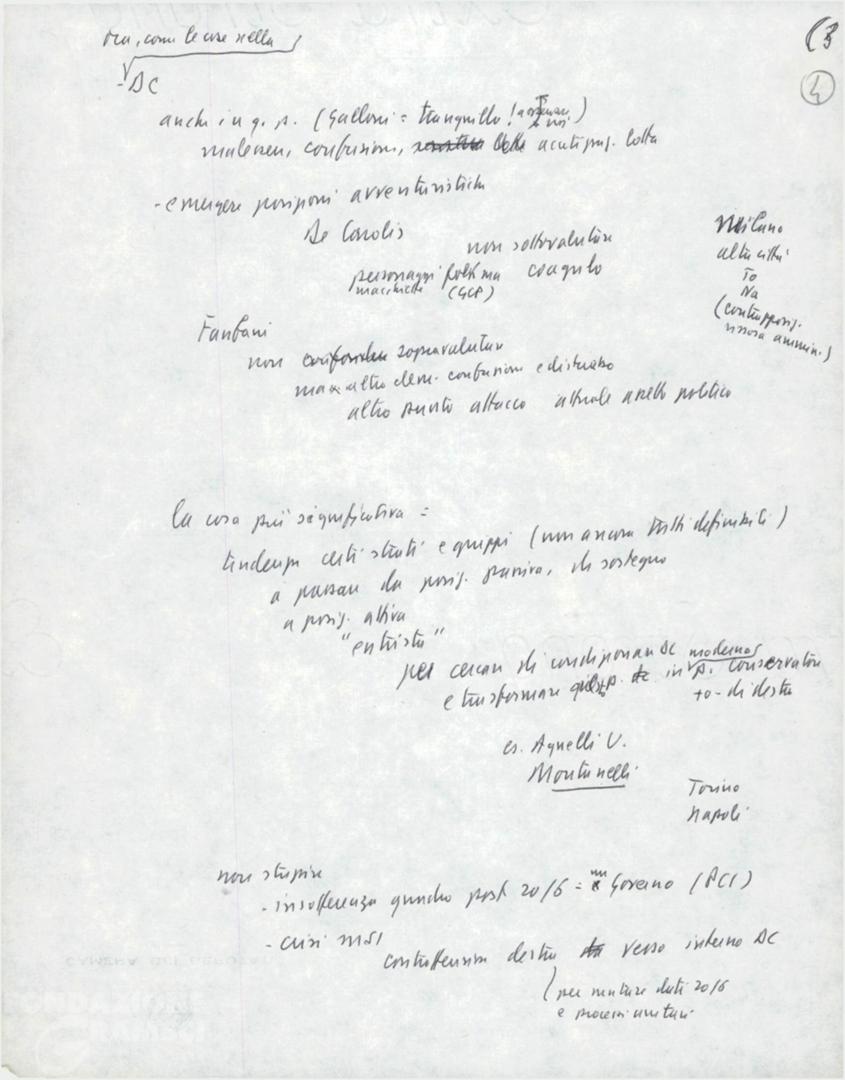 ora, come le cose nella
- DC
(3
4
anche in q. p. (Galloni = tranquillo!
malessere, confusione, acutizzaz. lotta
- emergere posizioni avventuristiche
De Carolis
non sottovalutare
personaggi folk ma coagulo
macchiette (GCP)
Milano
altre città
To
Na
(contrapposiz.
ammin.)
Fanfani
non sopravalutare
ma altro elem. confusione e disturbo
altro punto attacco attuale assetto politico
la cosa più significativa =
tendenza certi strati e gruppi (non ancora tutti definibili)
a passare da posiz. passiva, di sostegno
a posiz. attiva
"entrista"
per cercare di condizionare DC moderna
e trasformare in p. conservatore
to - di destra
es. Agnelli U.
Montanelli
Torino
Napoli
non stupire
- insofferenza quadro post 20/6 = Governo (PCI)
- crisi MSI
controffensiva destra verso interno DC
(per mutare dati 20/6
e processi unitari
CAMERA DEI DEPUTATI
FONDAZIONE
GRAMSCI